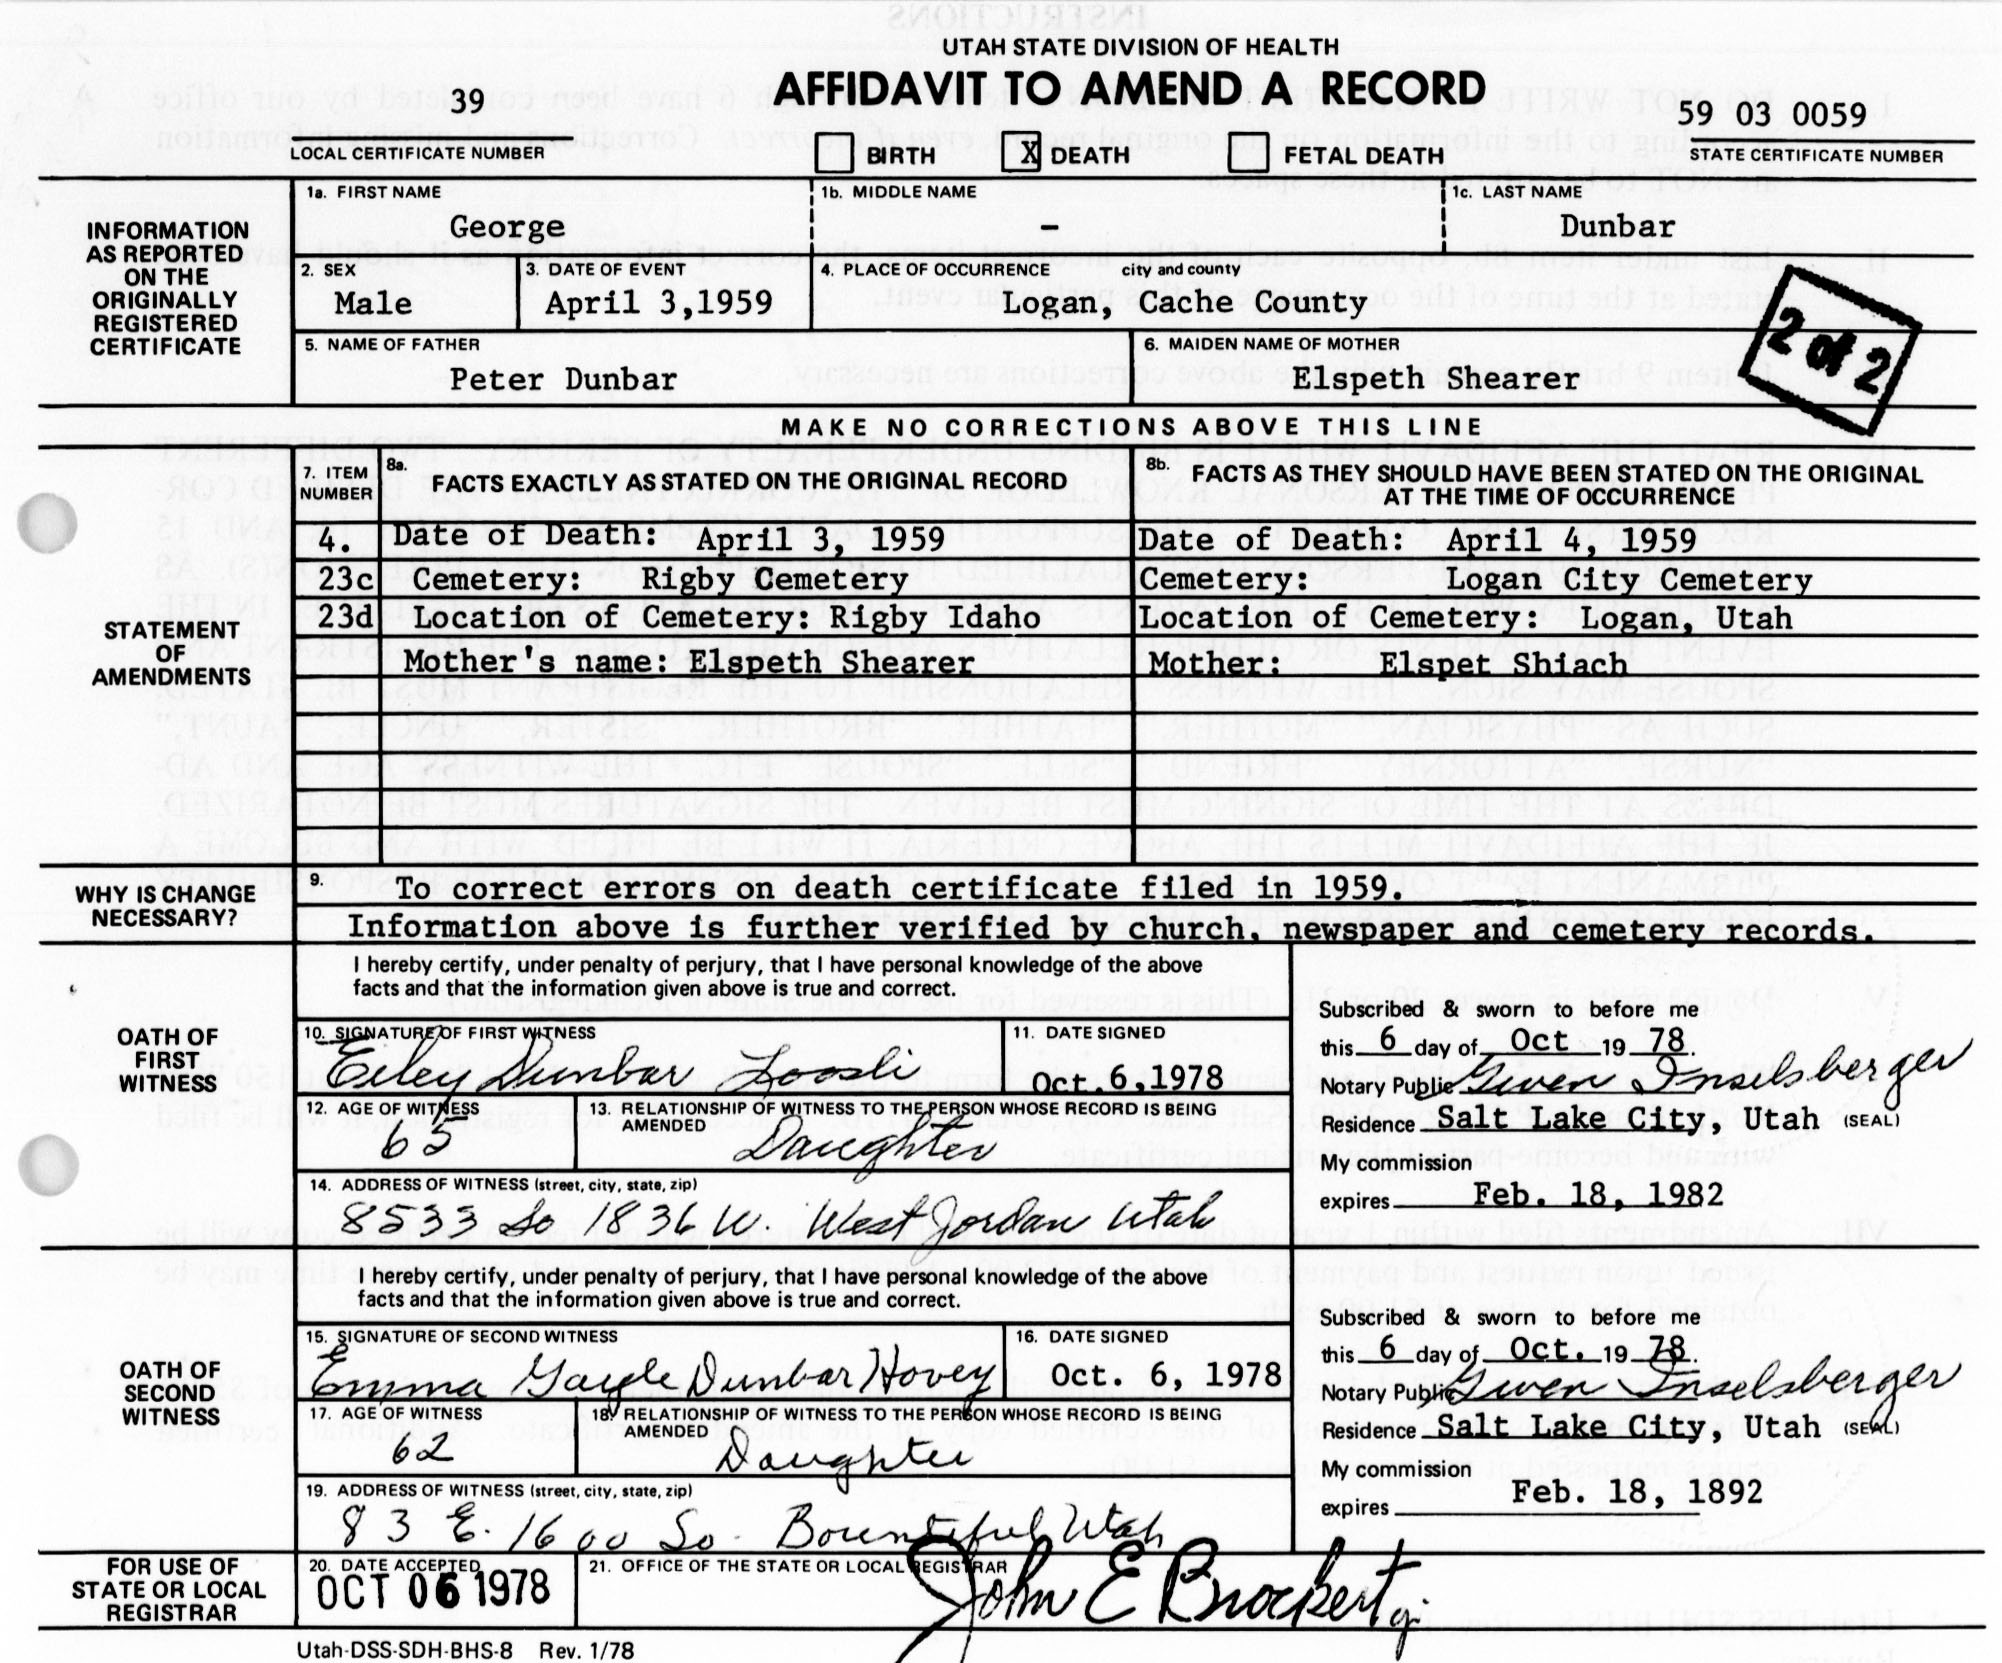 UTAH STATE DIVISION OF HEALTH
AFFIDAVIT TO AMEND A RECORD
39
LOCAL CERTIFICATE NUMBER
BIRTH X DEATH FETAL DEATH
59 03 0059
STATE CERTIFICATE NUMBER
INFORMATION AS REPORTED ON THE ORIGINALLY REGISTERED CERTIFICATE
1a. FIRST NAME
George
1b. MIDDLE NAME
-
1c. LAST NAME
Dunbar
2. SEX
Male
3. DATE OF EVENT
April 3,1959
4. PLACE OF OCCURRENCE city and county
Logan, Cache County
2 of 2
5. NAME OF FATHER
Peter Dunbar
6. MAIDEN NAME OF MOTHER
Elspeth Shearer
MAKE NO CORRECTIONS ABOVE THIS LINE
STATEMENT OF AMENDMENTS
7. ITEM NUMBER
8a. FACTS EXACTLY AS STATED ON THE ORIGINAL RECORD
8b. FACTS AS THEY SHOULD HAVE BEEN STATED ON THE ORIGINAL AT THE TIME OF OCCURRENCE
4. Date of Death: April 3, 1959 Date of Death: April 4, 1959
23c Cemetery: Rigby Cemetery Cemetery: Logan City Cemetery
23d Location of Cemetery: Rigby Idaho Location of Cemetery: Logan, Utah
Mother's name: Elspeth Shearer Mother: Elspet Shiach
WHY IS CHANGE NECESSARY?
9. To correct errors on death certificate filed in 1959.
Information above is further verified by church, newspaper and cemetery records.
OATH OF FIRST WITNESS
I hereby certify, under penalty of perjury, that I have personal knowledge of the above
facts and that the information given above is true and correct.
10. SIGNATURE OF FIRST WITNESS
Eiley Dunbar Loosli
11. DATE SIGNED
Oct. 6,1978
12. AGE OF WITNESS
65
13. RELATIONSHIP OF WITNESS TO THE PERSON WHOSE RECORD IS BEING AMENDED
Daughter
14. ADDRESS OF WITNESS (street, city, state, zip)
8533 So 1836 W. West Jordan Utah
Subscribed & sworn to before me
this 6 day of Oct 19 78.
Notary Public Gwen Inselsberger
Residence Salt Lake City, Utah (SEAL)
My commission
expires Feb. 18, 1982
OATH OF SECOND WITNESS
I hereby certify, under penalty of perjury, that I have personal knowledge of the above
facts and that the information given above is true and correct.
15. SIGNATURE OF SECOND WITNESS
Emma Gayle Dunbar Hovey
16. DATE SIGNED
Oct. 6, 1978
17. AGE OF WITNESS
62
18. RELATIONSHIP OF WITNESS TO THE PERSON WHOSE RECORD IS BEING AMENDED
Daughter
19. ADDRESS OF WITNESS (street, city, state, zip)
83 E. 1600 So. Bountiful Utah
Subscribed & sworn to before me
this 6 day of Oct. 19 78.
Notary Public Gwen Inselsberger
Residence Salt Lake City, Utah (SEAL)
My commission
expires Feb. 18, 1892
FOR USE OF STATE OR LOCAL REGISTRAR
20. DATE ACCEPTED
OCT 06 1978
21. OFFICE OF THE STATE OR LOCAL REGISTRAR
John E Brockert
Utah-DSS-SDH-BHS-8 Rev. 1/78